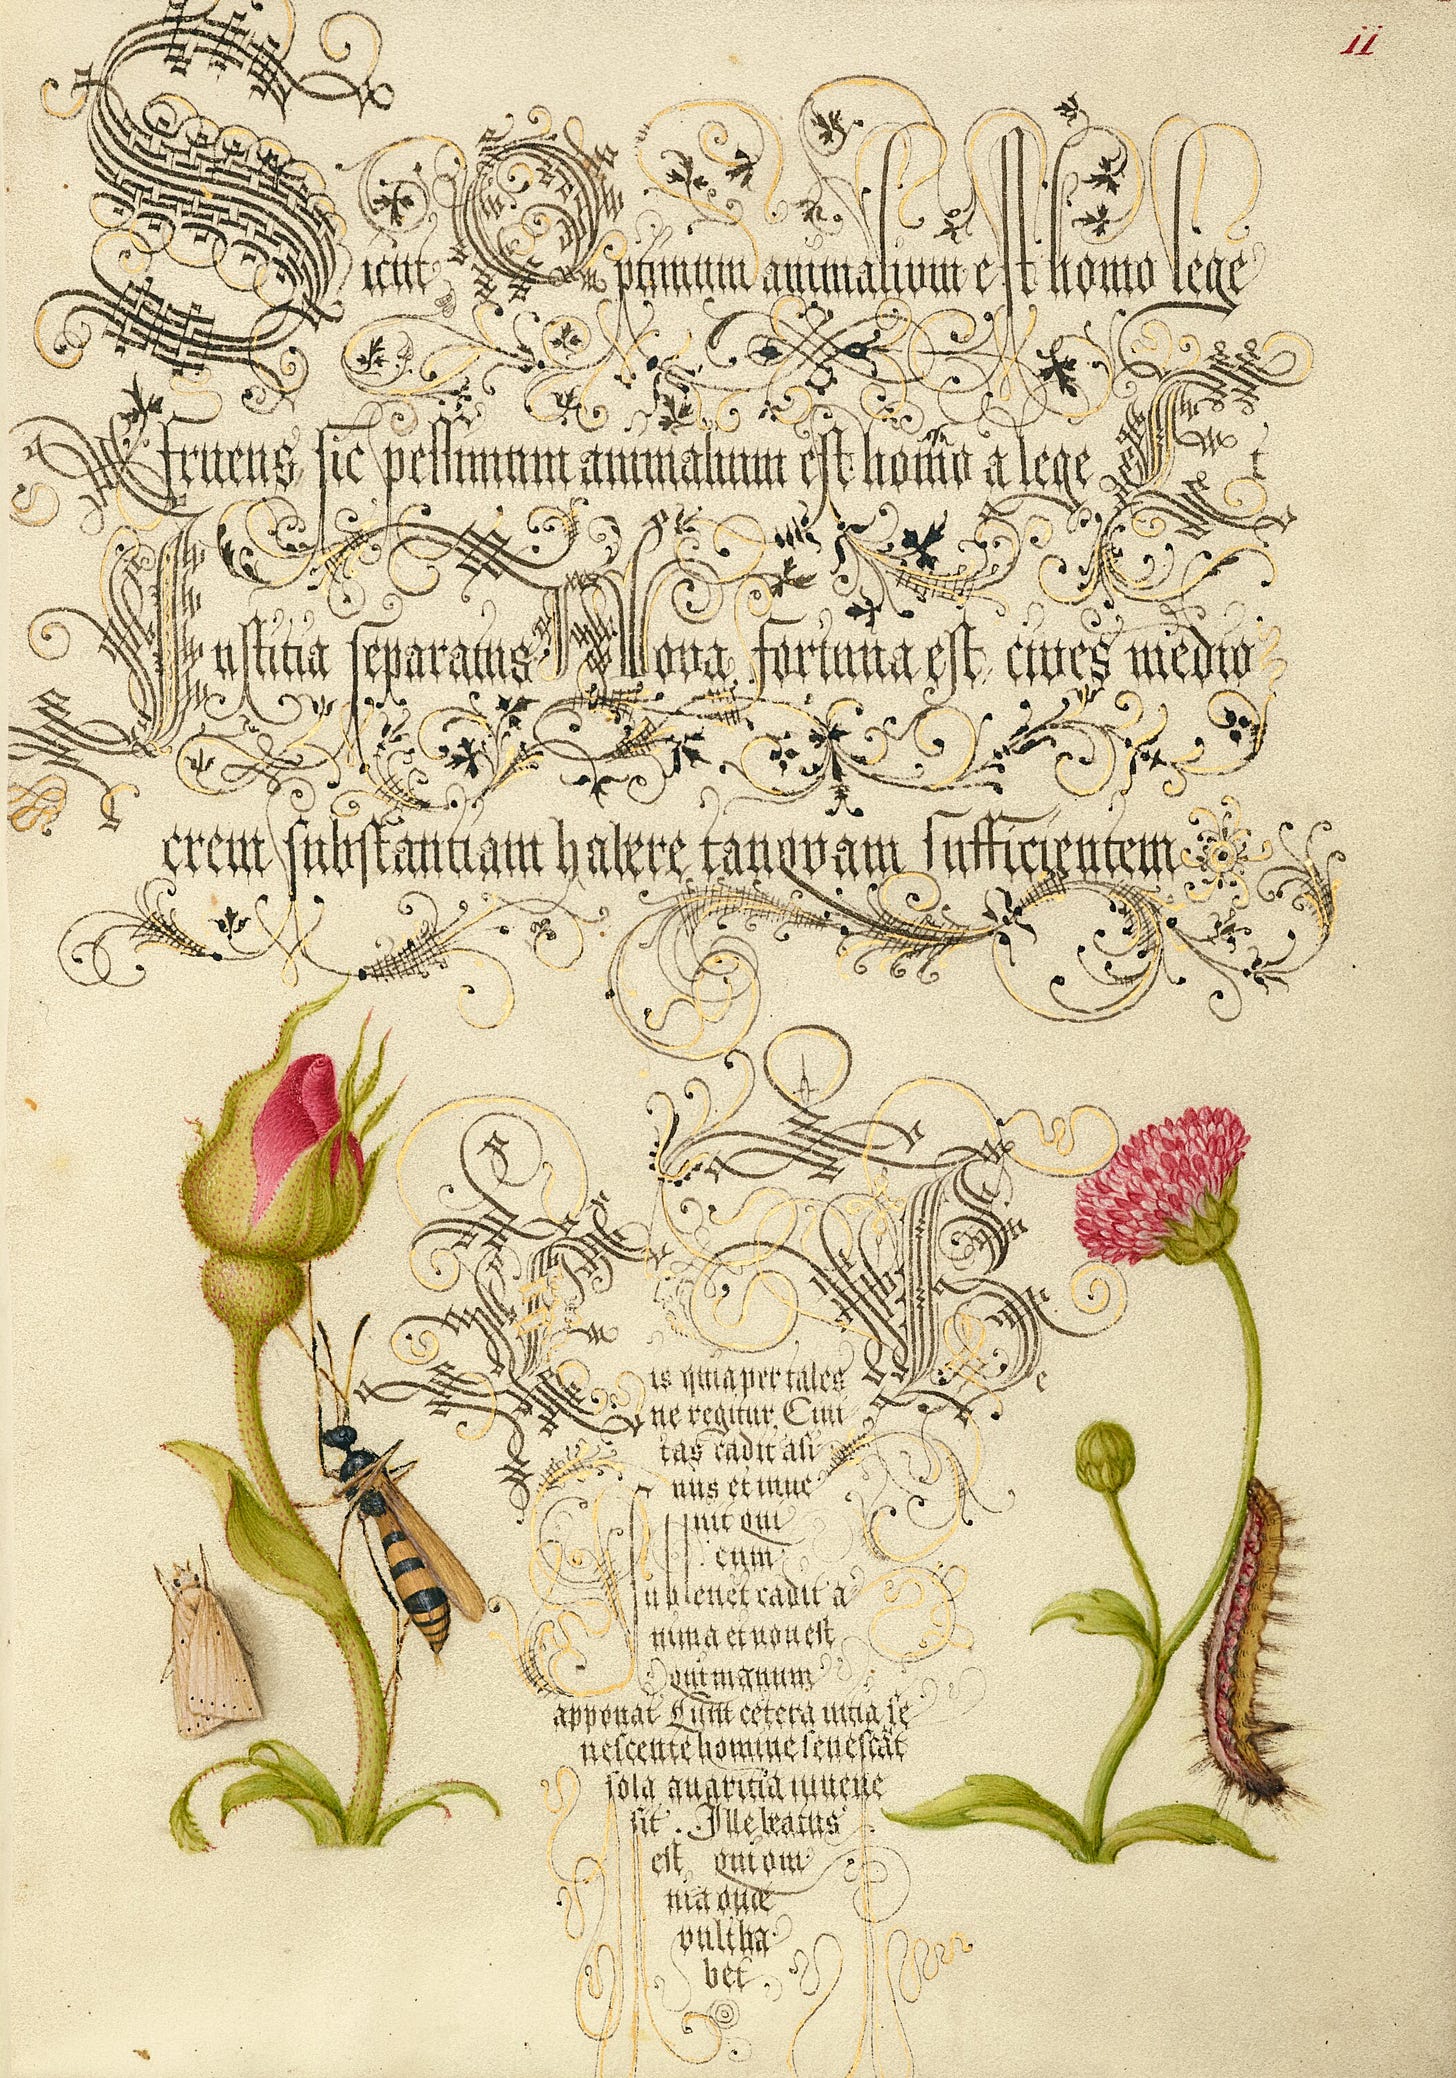 ii
Sicut Optimum animalium est homo lege
fruens, sic pessimum animalium est homo a lege Et
Iustitia separatus. Nova fortuna est, cives medio
crem substantiam habere tanqvam sufficientem
is quia per tales
ne regitur. Civi
tas cadit asi
nus et inve
nit qui
cum
sublevet cadit a
nima et non est
qui manum
apponat Cum cetera vitia se
nescente homine senescāt
sola avaritia iuvene
sit. Ille beatus
est, qui om
nia quæ
vult ha
bet.